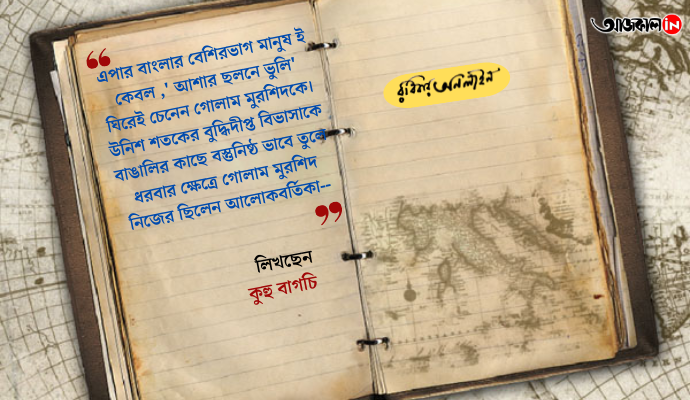 আজকাল in
“
এপার বাংলার বেশিরভাগ মানুষ ই
কেবল ,' আশার ছলনে ভুলি'
ঘিরেই চেনেন গোলাম মুরশিদকে।
উনিশ শতকের বুদ্ধিদীপ্ত বিভাসাকে
বাঙালির কাছে বস্তুনিষ্ঠ ভাবে তুলে
ধরবার ক্ষেত্রে গোলাম মুরশিদ
নিজের ছিলেন আলোকবর্তিকা--
”
লিখছেন
কুহু বাগচি
রবিবার অনলাইন